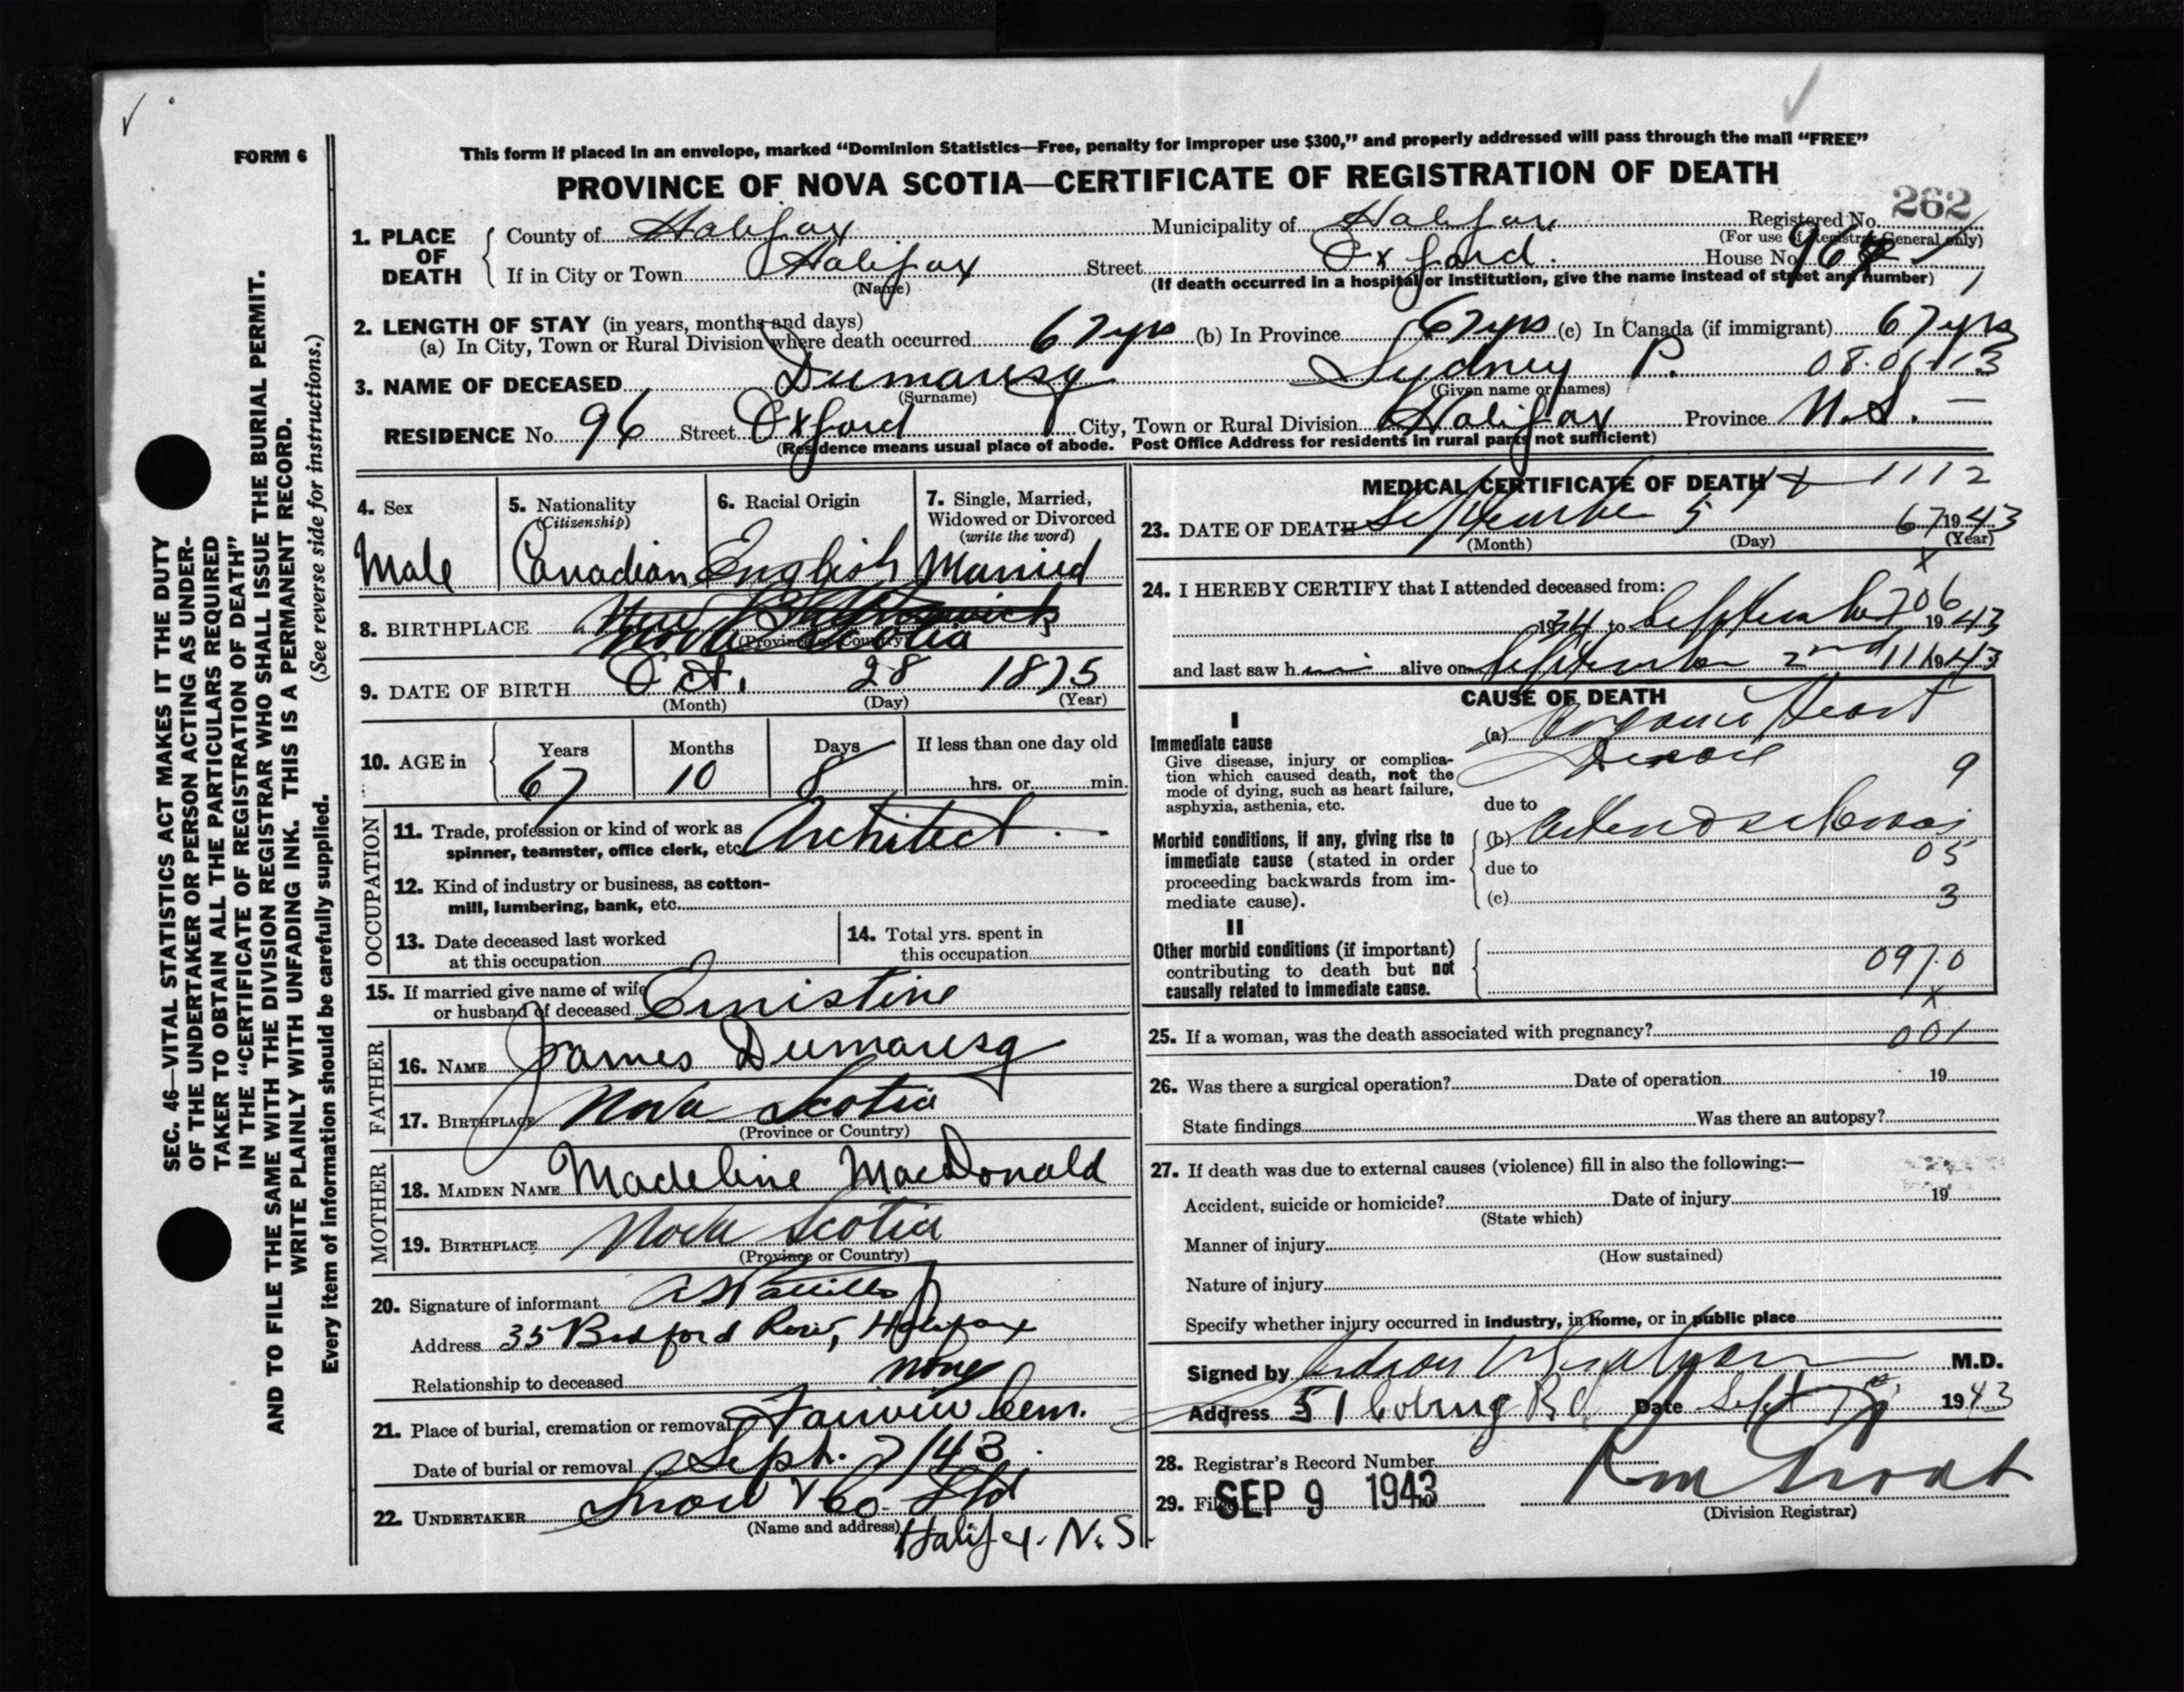 FORM 6
This form if placed in an envelope, marked “Dominion Statistics—Free, penalty for improper use $300,” and properly addressed will pass through the mail “FREE”
PROVINCE OF NOVA SCOTIA—CERTIFICATE OF REGISTRATION OF DEATH
262
1. PLACE OF DEATH
County of Halifax Municipality of Halifax Registered No.
(For use of Registrar General only)
If in City or Town Halifax Street Oxford. House No. 96
(Name) (If death occurred in a hospital or institution, give the name instead of street and number)
2. LENGTH OF STAY (in years, months and days)
(a) In City, Town or Rural Division where death occurred 67 yrs (b) In Province 67 yrs (c) In Canada (if immigrant) 67 yrs
3. NAME OF DECEASED Dumaresq Sydney P.
(Surname) (Given name or names)
RESIDENCE No. 96 Street Oxford City, Town or Rural Division Halifax Province N.S.
(Residence means usual place of abode. Post Office Address for residents in rural parts not sufficient)
4. Sex 5. Nationality (Citizenship) 6. Racial Origin 7. Single, Married, Widowed or Divorced (write the word)
Male Canadian English Married
8. BIRTHPLACE New Brunswick
Nova Scotia
(Province or Country)
9. DATE OF BIRTH Oct. 28 1875
(Month) (Day) (Year)
10. AGE in Years Months Days If less than one day old
67 10 8 hrs. or min.
OCCUPATION
11. Trade, profession or kind of work as
spinner, teamster, office clerk, etc. Architect
12. Kind of industry or business, as cotton-
mill, lumbering, bank, etc.
13. Date deceased last worked
at this occupation
14. Total yrs. spent in
this occupation
15. If married give name of wife
or husband of deceased Ernistine
FATHER
16. NAME James Dumaresq
17. BIRTHPLACE Nova Scotia
(Province or Country)
MOTHER
18. MAIDEN NAME Madeline MacDonald
19. BIRTHPLACE Nova Scotia
(Province or Country)
20. Signature of informant
Address 35 Bedford Row, Halifax
Relationship to deceased none
21. Place of burial, cremation or removal Fairview Cem.
Date of burial or removal Sept. 7/43.
22. UNDERTAKER Snow & Co. Ltd
(Name and address) Halifax. N.S.
MEDICAL CERTIFICATE OF DEATH 1112
23. DATE OF DEATH September 5 67 1943
(Month) (Day) (Year)
24. I HEREBY CERTIFY that I attended deceased from:
1934 to September 1943
and last saw him alive on September 2nd 1943
CAUSE OF DEATH
I
Immediate cause
Give disease, injury or complica-
tion which caused death, not the
mode of dying, such as heart failure,
asphyxia, asthenia, etc.
(a) Organic Heart
Disease
9
due to
Morbid conditions, if any, giving rise to
immediate cause (stated in order
proceeding backwards from im-
mediate cause).
(b) Arteriosclerosis
05
due to
(c) 3
II
Other morbid conditions (if important)
contributing to death but not
causally related to immediate cause.
097.0
25. If a woman, was the death associated with pregnancy? 001
26. Was there a surgical operation? Date of operation 19
State findings Was there an autopsy?
27. If death was due to external causes (violence) fill in also the following:—
Accident, suicide or homicide? Date of injury 19
(State which)
Manner of injury
(How sustained)
Nature of injury
Specify whether injury occurred in industry, in home, or in public place
Signed by M.D.
Address 51 Coburg Rd. Date Sept 7 1943
28. Registrar's Record Number
29. Filed SEP 9 1943
(Division Registrar)
SEC. 46—VITAL STATISTICS ACT MAKES IT THE DUTY
OF THE UNDERTAKER OR PERSON ACTING AS UNDER-
TAKER TO OBTAIN ALL THE PARTICULARS REQUIRED
IN THE “CERTIFICATE OF REGISTRATION OF DEATH”
AND TO FILE THE SAME WITH THE DIVISION REGISTRAR WHO SHALL ISSUE THE BURIAL PERMIT.
WRITE PLAINLY WITH UNFADING INK. THIS IS A PERMANENT RECORD.
Every item of information should be carefully supplied. (See reverse side for instructions.)